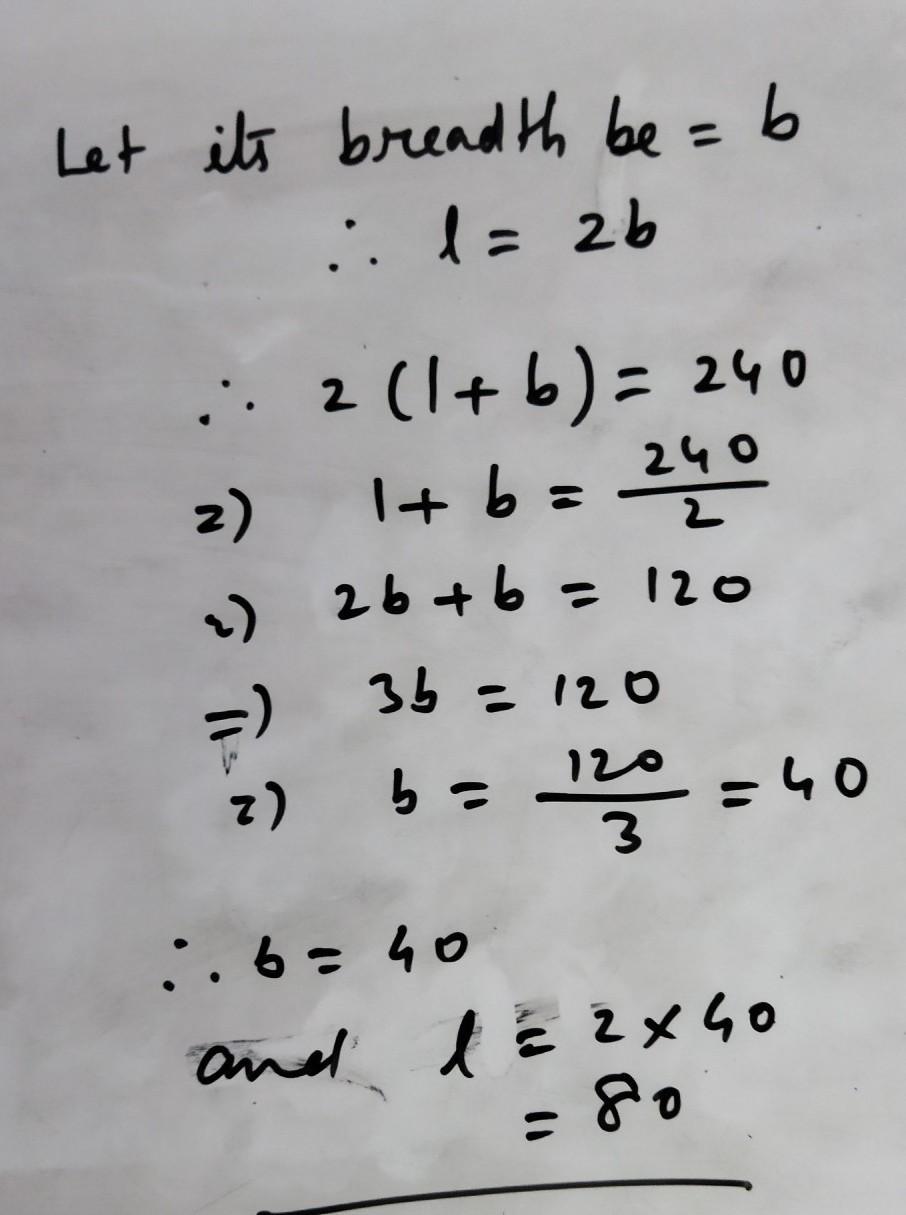 Let its breadth be = b
∴ l = 2b
∴ 2 (l + b) = 240
=) l + b = 240/2
=) 2b + b = 120
=) 3b = 120
=) b = 120/3 = 40
∴ b = 40
and l = 2 × 40
= 80